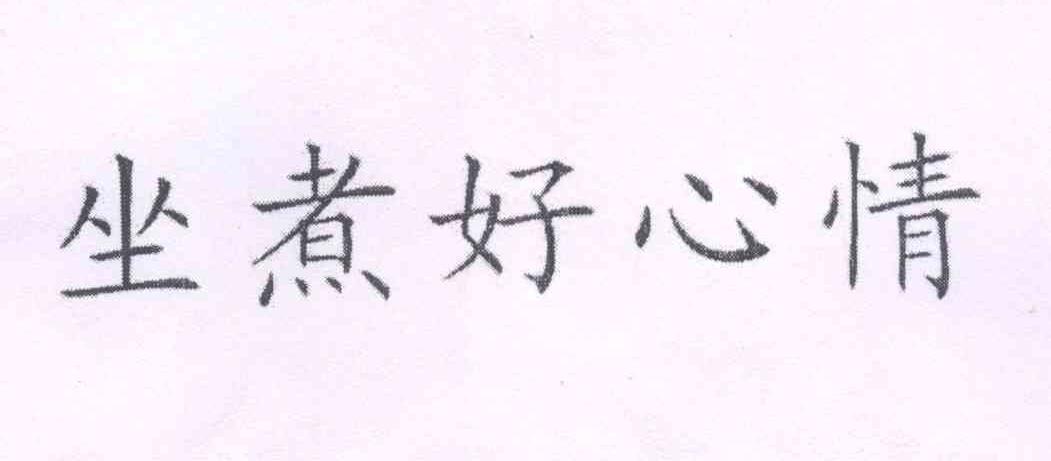 坐煮好心情